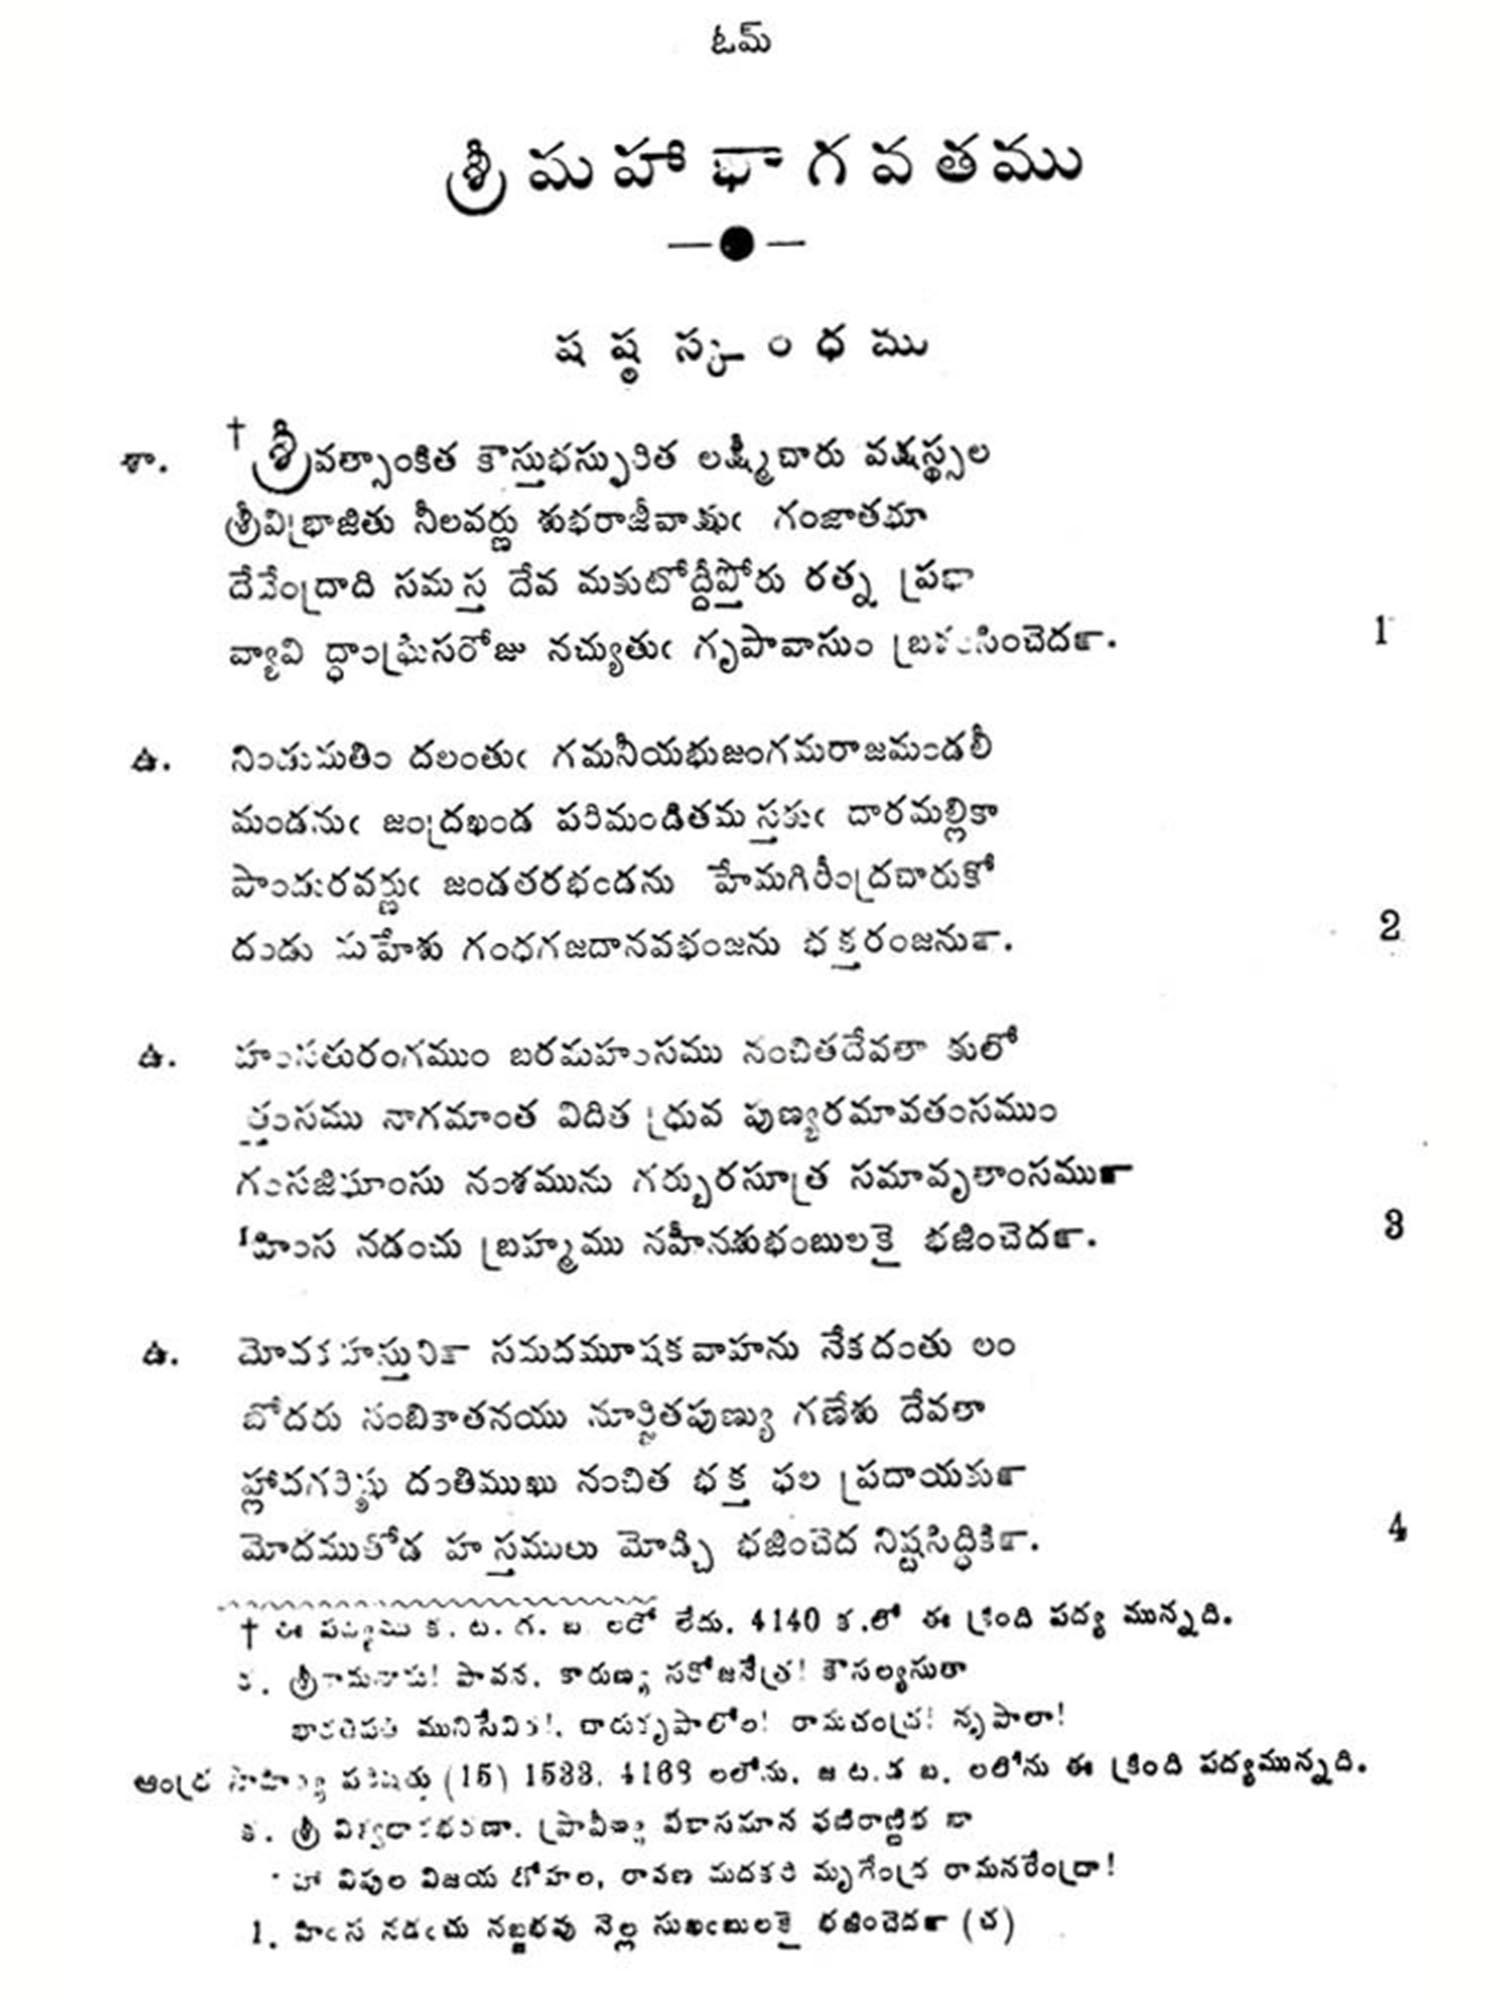 ఓమ్
శ్రీమహాభాగవతము
షష్ఠస్కంధము
శా. † శ్రీవత్సాంకిత కౌస్తుభస్ఫురిత లక్ష్మీచారు వక్షస్థ్సల
శ్రీవిభ్రాజితు నీలవర్ణు శుభరాజీవాక్షుఁ గంజాతభూ
దేవేంద్రాది సమస్త దేవ మకుటోద్దీప్తోరు రత్న ప్రభా
వ్యావి ద్ధాంఘ్రిసరోజు నచ్యుతుఁ గృపావాసుం బ్రశంసించెదఁ. 1
ఉ. నిండుమతిం దలంతుఁ గమనీయభుజంగమరాజమండలీ
మండనుఁ జంద్రఖండ పరిమండితమస్తకుఁ దారమల్లికా
పాండురవర్ణుఁ జండతరభండను హేమగిరీంద్రచారుకో
దండు మహేశు గంధగజదానవభంజను భక్తరంజనుఁ. 2
ఉ. హంసతురంగముం బరమహంసము నంచితదేవతా కులో
త్తంసము నాగమాంత విదిత ధ్రువ పుణ్యరమావతంసముం
గంసజిఘాంసు నంశమును గర్బురసూత్ర సమావృతాంసముఁ
1హింస నడంచు బ్రహ్మము నహీనశుభంబులకై భజించెదఁ. 3
ఉ. మోదకహస్తునిఁ సమదమూషకవాహను నేకదంతు లం
బోదరు నంబికాతనయు నూర్జితపుణ్యు గణేశు దేవతా
హ్లాదగరిష్ఠు దంతిముఖు నంచిత భక్త ఫల ప్రదాయకుఁ
మోదముతోడ హస్తములు మోడ్చి భజించెద నిష్టసిద్ధికిఁ. 4
† ఈ పద్యము క. ట. గ. ఙ. లలో లేదు. 4140 క.లో ఈ క్రింది పద్య మున్నది.
క. శ్రీరామనామ! పావన, కారుణ్య సరోజనేత్ర! కౌసల్యసుతా
మునిసేవిత!, చారుకృపాలోల! రామచంద్ర! నృపాలా!
ఆంధ్ర సాహిత్య పరిషత్తు (15) 1533. 4168 లలోను. ఙ. లలోను ఈ క్రింది పద్యమున్నది.
క. శ్రీ ప్రావీణ్య
విపుల విజయ దోహల, రావణ మదకరి మృగేంద్ర రామనరేంద్రా!
1. హింస నడంచు నబ్జభవు నెల్ల సుఖంబులకై భజించెదఁ (చ)